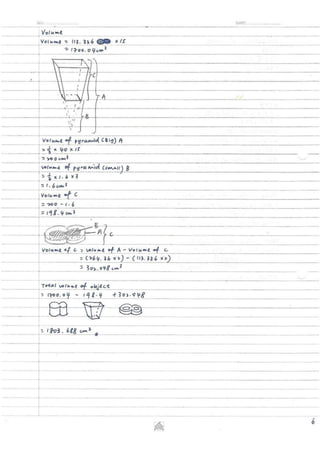 Volume
Volume = 113.336 × 15
= 1700.04 cm³
C
A
B
Volume of pyramid (Big) A
= ⅓ × 40 × 15
= 200 cm³
volume of pyramid (small) B
= ⅓ × 1.6 × 3
= 1.6 cm³
Volume of C
= 200 - 1.6
= 198.4 cm³
E
A
C
Volume of C = volume of A - Volume of C
= (264.36 × 2) - (113.336 × 2)
= 302.048 cm³
Total volume of object
= 1700.04 - 198.4 + 302.048
= 1803.688 cm³
6